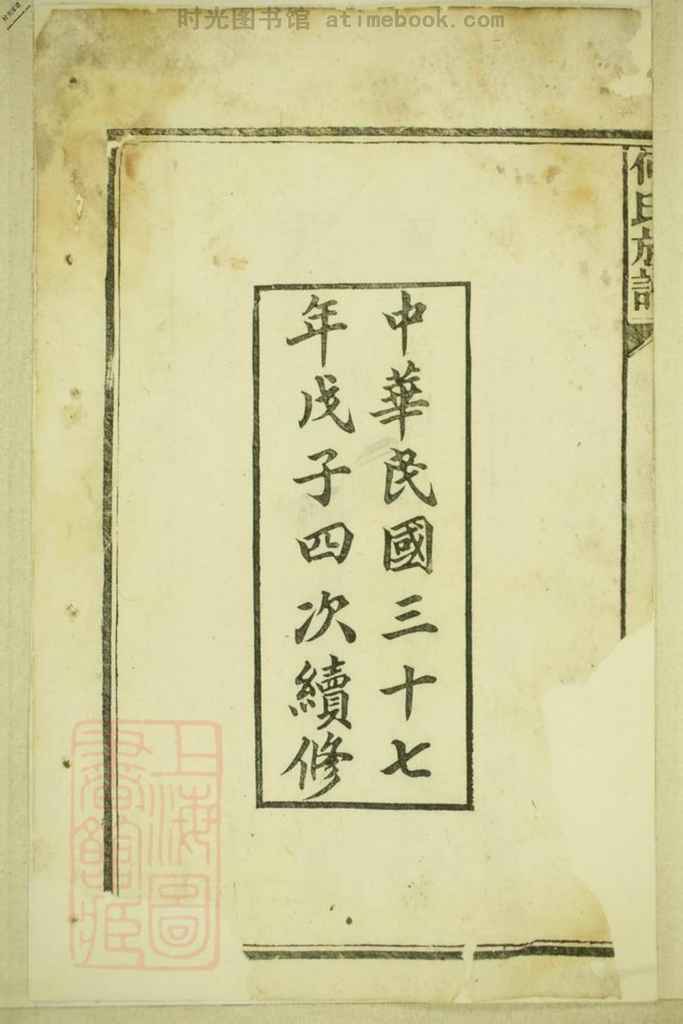 时光图书馆 atimebook.com
何氏族譜
中華民國三十七
年戊子四次續修
上海圖
書館藏